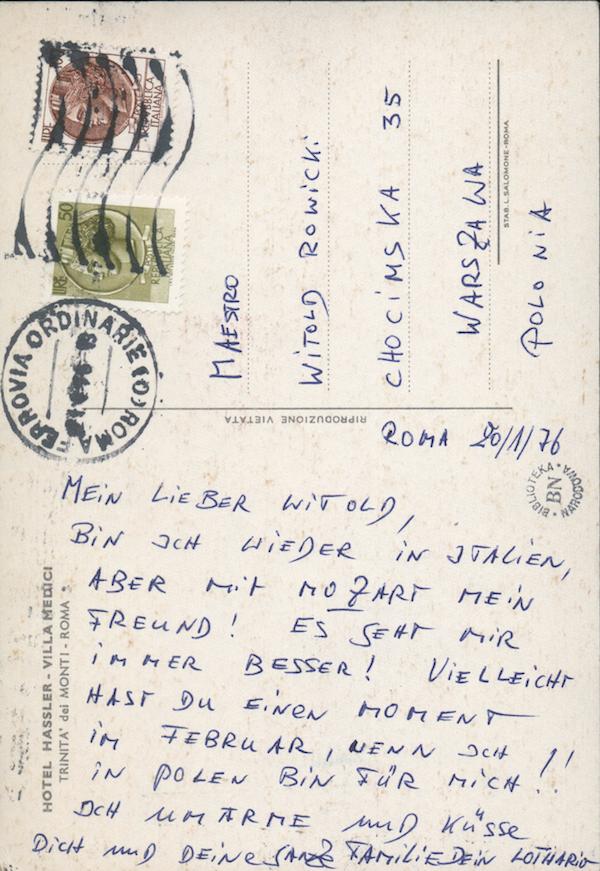 ROMA 20/1/76
MEIN LIEBER WITOLD,
BIN ICH WIEDER IN ITALIEN,
ABER MIT MOZART MEIN
FREUND! ES GEHT MIR
IMMER BESSER! VIELLEICHT
HAST DU EINEN MOMENT
IM FEBRUAR, WENN ICH
IN POLEN BIN FÜR MICH!!
ICH UMARME UND KÜSSE
DICH UND DEINE GANZE FAMILIE DEIN LOTHARIO
MAESTRO
WITOLD ROWICKI
CHOCIMSKA 35
WARSZAWA
POLONIA
HOTEL HASSLER - VILLA MEDICI
TRINITA' dei MONTI - ROMA
RIPRODUZIONE VIETATA
STAB. L. SALOMONE - ROMA
LIRE
REPUBBLICA
ITALIANA
50
LIRE
REPUBBLICA
ITALIANA
ROMA FERROVIA ORDINARIE (O)
BIBLIOTEKA NARODOWA
BN